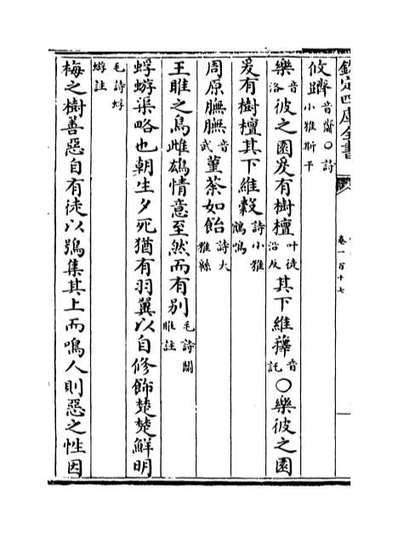 欽定四庫全書
卷一百十七
攸躋音齋○詩小雅斯干
樂音洛彼之園爰有樹檀叶徒沿反其下維蘀音託○樂彼之園
爰有樹檀其下維榖詩小雅鶴鳴
周原膴膴音武菫荼如飴詩大雅緜
王雎之鳥雌雄情意至然而有别毛詩關雎註
蜉蝣渠略也朝生夕死猶有羽翼以自修飾楚楚鮮明
毛詩蜉蝣註
梅之樹善惡自有徒以鴞集其上而鳴人則惡之性因